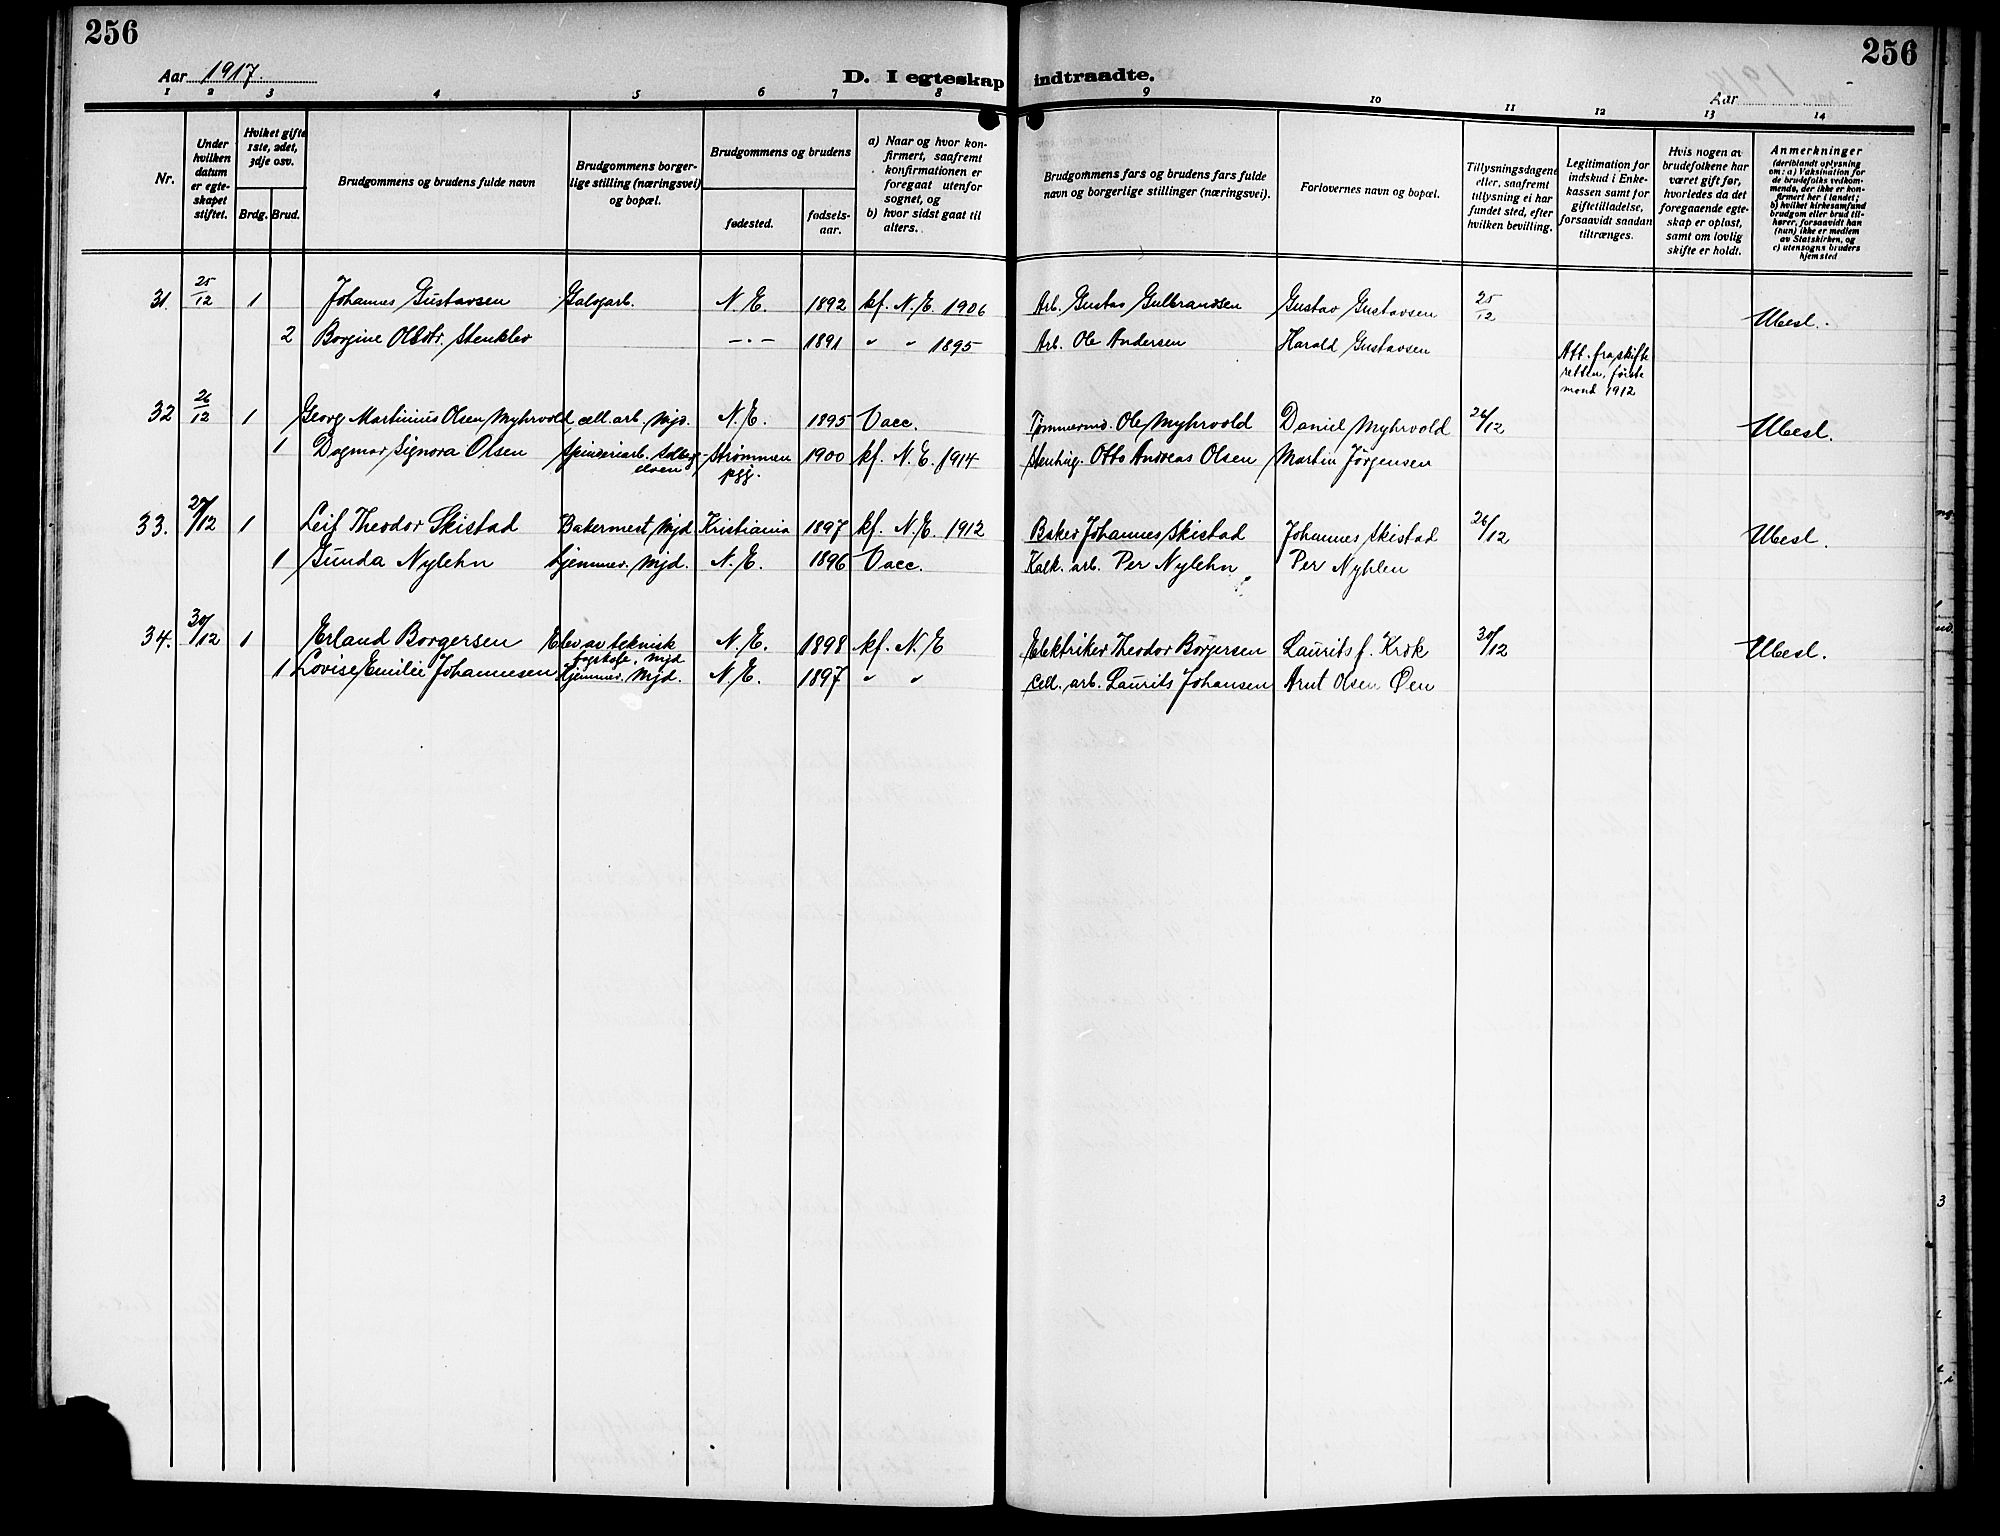 256
256
Aar 1917.
D. I egteskap indtraadte.
Aar
1 2 3 4 5 6 7 8 9 10 11 12 13 14
Nr.
Under hvilken datum er egteskapet stiftet.
Hvilket gifte 1ste, 2det, 3dje osv.
Brdg. Brud.
Brudgommens og brudens fulde navn
Brudgommens borgerlige stilling (næringsvei) og bopæl.
Brudgommens og brudens
fødested.
fødselsaar.
a) Naar og hvor konfirmert, saafremt konfirmationen er foregaat utenfor sognet, og
b) hvor sidst gaat til alters.
Brudgommens fars og brudens fars fulde navn og borgerlige stillinger (næringsvei).
Forlovernes navn og bopæl.
Tillysningsdagene eller, saafremt tillysning ei har fundet sted, efter hvilken bevilling.
Legitimation for indskud i Enkekassen samt for giftetilladelse, forsaavidt saadan tiltrænges.
Hvis nogen av brudefolkene har været gift før, hvorledes da det foregaaende egteskap er opløst, samt om lovlig skifte er holdt.
Anmerkninger
(deriblandt oplysning om: a) Vaksination for de brudefolks vedkommende, der ikke er konfirmert her i landet; b) hvilket kirkesamfund brudgom eller brud tilhører, forsaavidt han (hun) ikke er medlem av Statskirken, og c) utensogns bruders hjemsted
31. 25/12 1 Johannes Gustavsen N.E. 1892 kf. N.E. 1906 Arb. Gustav Gulbrandsen Gustav Gustavsen 25/12 Ubesl.
2 Borgine Olsdtr. Stenklev -"- 1891 " " 1895 Arb. Ole Andersen Harald Gustavsen Att. fra skifteretten, første mand 1912
32 26/12 1 Georg Martinius Olsen Myhrvold cell. arb. Mjd. N.E. 1895 Vacc. Tømmermd. Ole Myhrvold Daniel Myhrvold 26/12 Ubesl.
1 Dagmar Signora Olsen Spinderiarb. Solbergelven Strømmen pgj. 1900 kf. N.E. 1914 Stenhug. Otto Andreas Olsen Martin Jørgensen
33. 29/12 1 Leif Theodor Skistad Bakermest. Mjd Kristiania 1897 kf. N.E. 1912 Baker Johannes Skistad Johannes Skistad 26/12 Ubesl.
1 Gunda Nylehn Hjemmev. Mjd. N.E. 1896 Vacc. Kalk. arb. Per Nylehn Per Nyhlen
34. 30/12 1 Erland Borgersen Elev av teknisk fagskole, Mjd N.E. 1898 kf. N.E Elektriker Theodor Borgersen Laurits J. Krok 30/12 Ubesl.
1 Lovise Emilie Johannesen Hjemmev. Mjd. N.E. 1897 " " Cell. arb. Laurits Johansen Arnt Olsen Øen